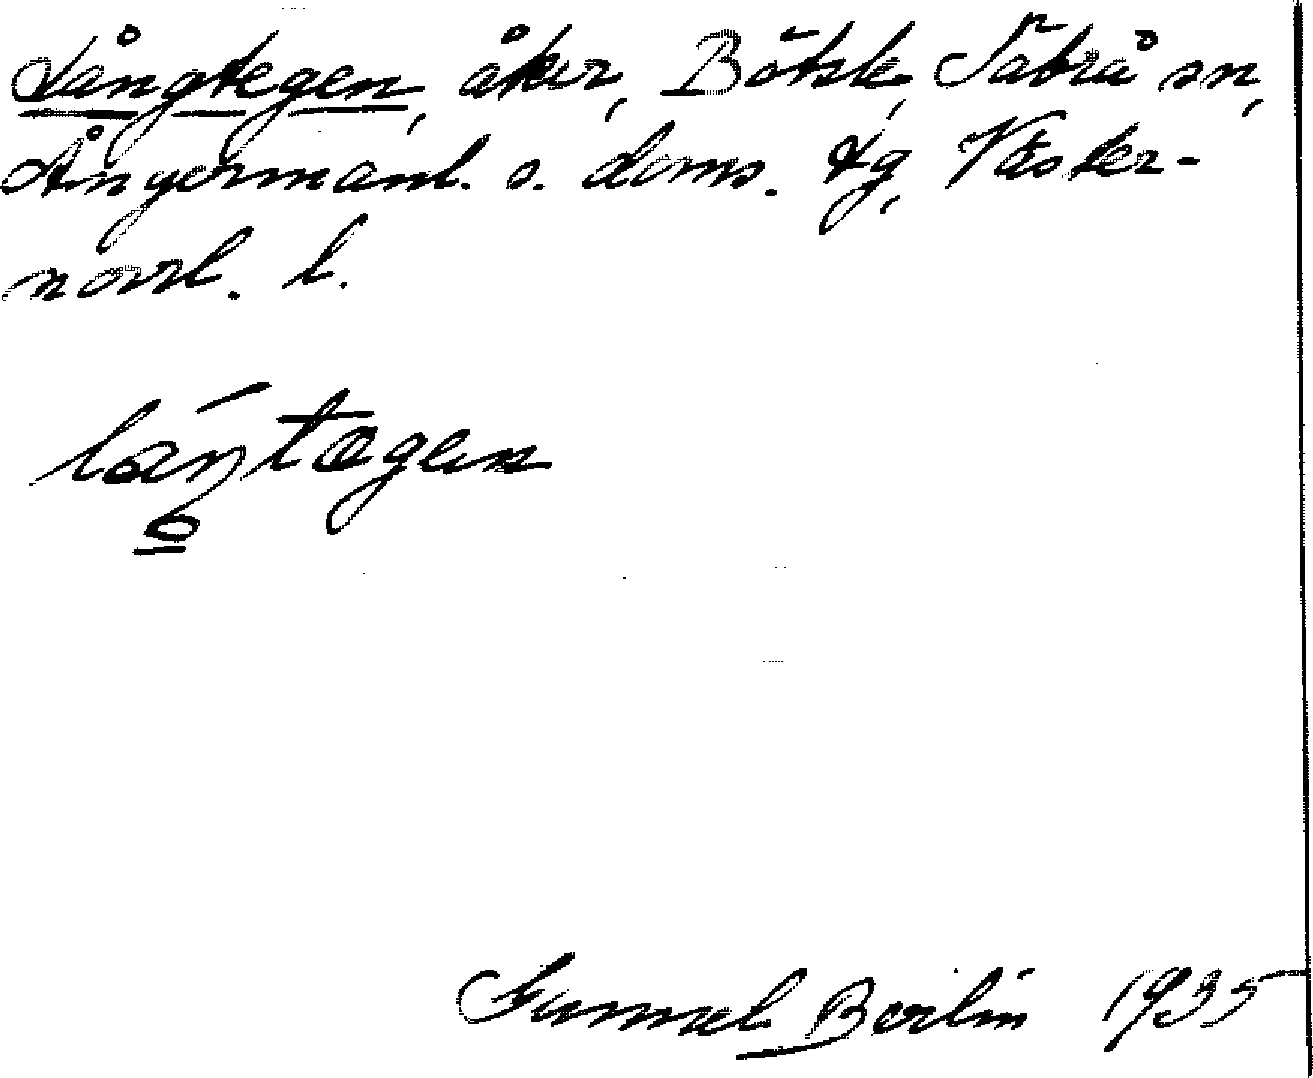 Långtegen, åker, Bölsle, Säbrå sn,
Ångermanl. s. doms. tg, Väster-
norrl. l.
låŋtegen
Gunnel Berlin 1935